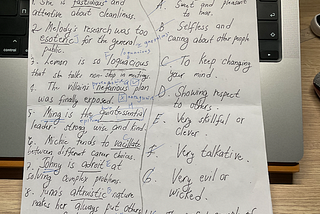 1. She is fastidious and
attentive about cleanliness.
2. Melody's research was too
esoteric for the general
public.
3. Lemon is so loquacious
that she talks non-stop in meetings.
4. The villain's nefarious plan
was finally exposed.
5. Ming is the quintessential
leader- strong, wise and kind.
6. Mickie tends to vacillate
between different career choices.
7. Johny is adroit at
solving complex problems.
8. Yuna's altruistic nature
makes her always put others
A. Smart and pleasant
to hear.
B. Selfless and
caring about other people
C. To keep changing
your mind.
D. Showing respect
to others.
E. Very skillful or
clever.
F. Very talkative.
G. Very evil or
wicked.